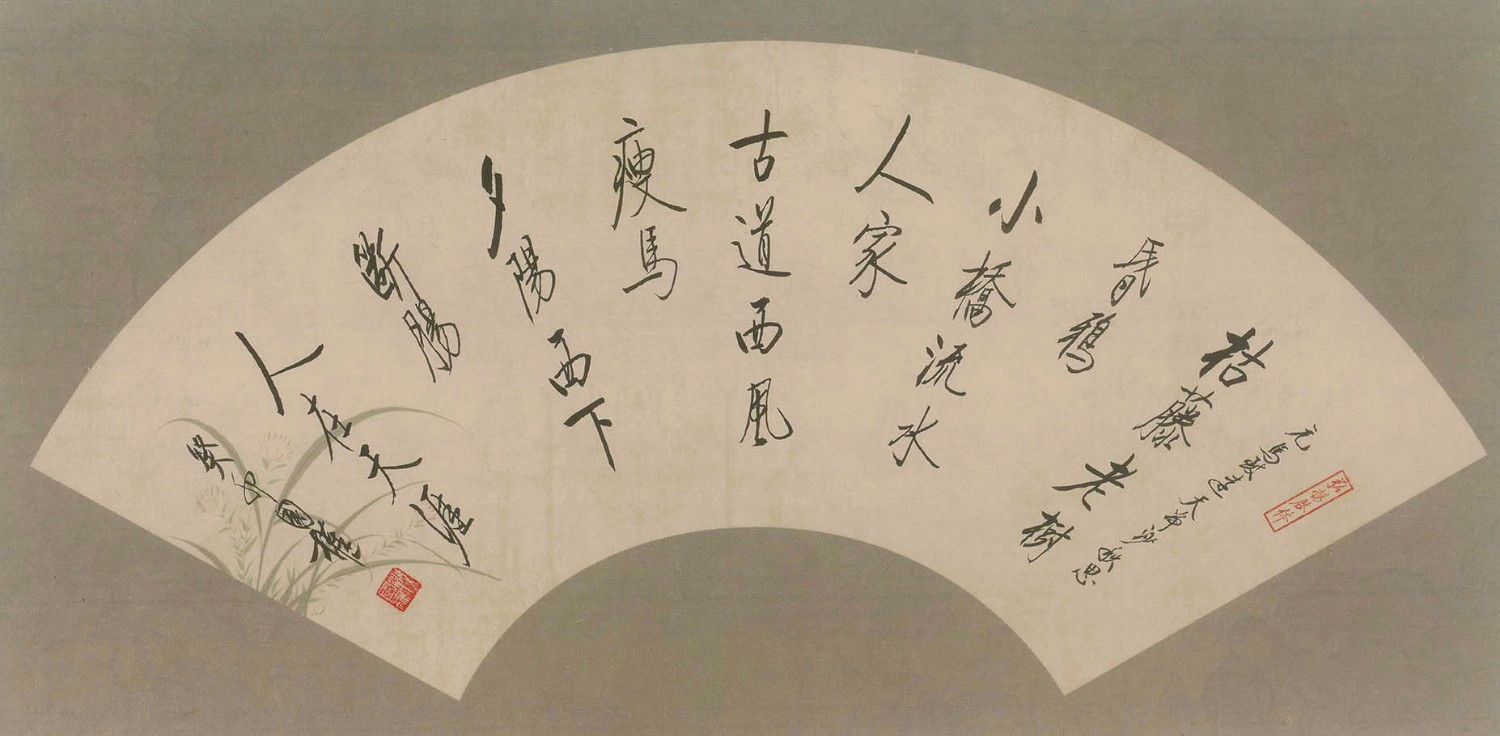 元馬致遠天净沙秋思
枯藤老樹
昏鴉
小橋流水
人家
古道西風
瘦馬
夕陽西下
斷腸
人在天涯
癸卯